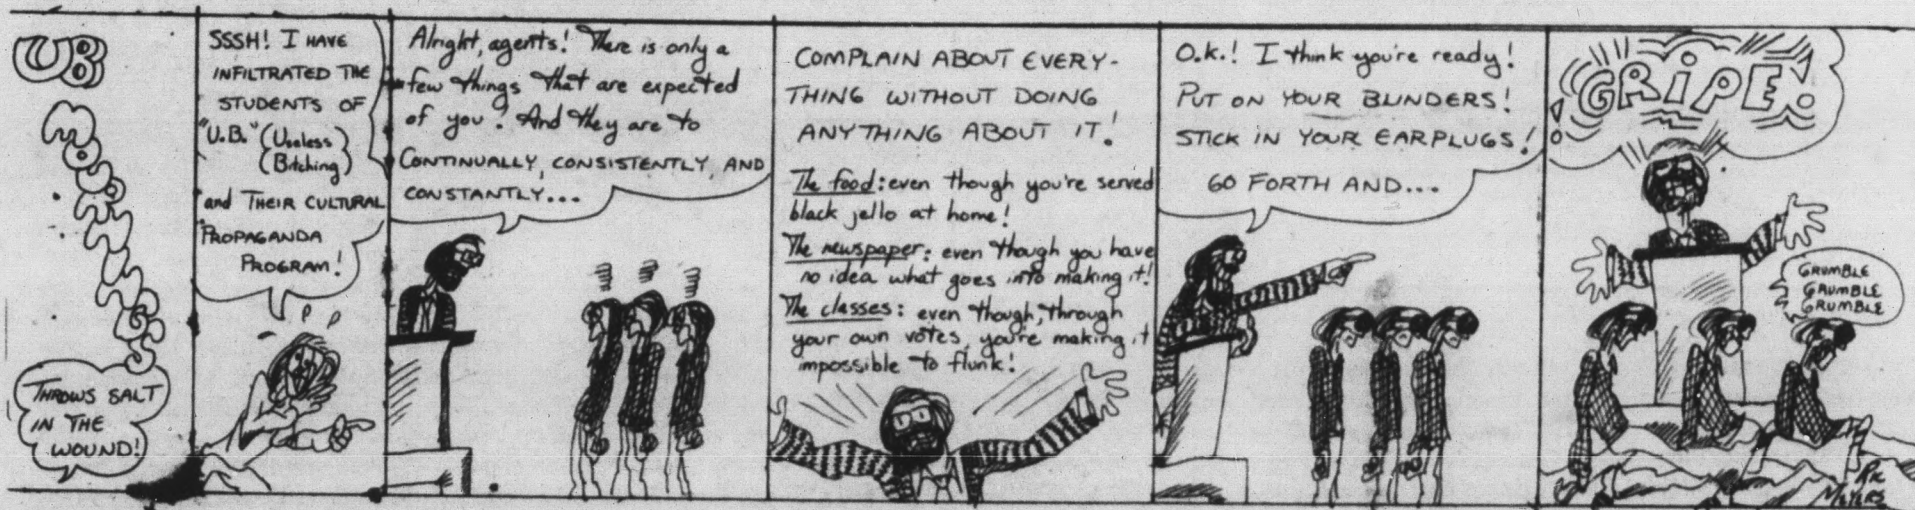 UB
THROWS SALT
IN THE
WOUND!
SSSH! I HAVE
INFILTRATED THE
STUDENTS OF
"U.B." (Useless
(Bitching)
and THEIR CULTURAL
PROPAGANDA
PROGRAM!
Alright, agents! There is only a
few things that are expected
of you! And they are to
CONTINUALLY, CONSISTENTLY, AND
CONSTANTLY...
COMPLAIN ABOUT EVERY-
THING WITHOUT DOING
ANYTHING ABOUT IT!
The food: even though you're served
black jello at home!
The newspaper: even though you have
no idea what goes into making it!
The classes: even though, through
your own votes, you're making it
impossible to flunk!
O.K.! I think you're ready!
PUT ON YOUR BLINDERS!
STICK IN YOUR EARPLUGS!
GO FORTH AND...
GRIPE!
GRUMBLE
GRUMBLE
GRUMBLE
MEYERS